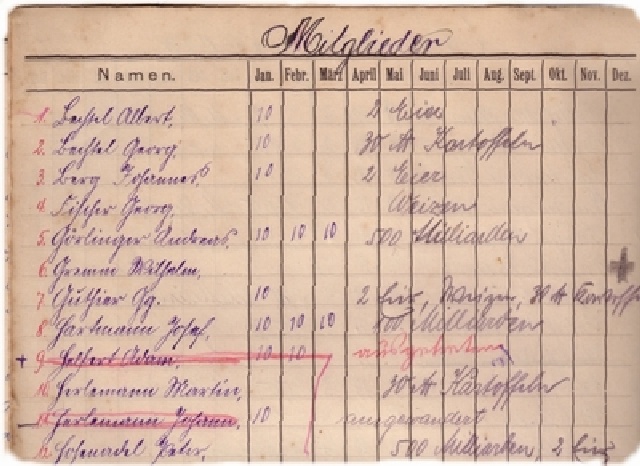 Mitglieder
Namen. Jan. Febr. März April Mai Juni Juli Aug. Sept. Okt. Nov. Dez.
1. Bechtel Albert. 10 2 Eier
2. Bechtel Georg. 10 30 ℔ Kartoffeln
3. Berg Johannes. 10 2 Eier
4. Fischer Georg. Weizen
5. Görlinger Andreas. 10 10 10 500 Milliarden
6. Gremm Wilhelm.
7. Guthier Gg. 10 2 Eier, Weizen, 30 ℔ Kartoffeln
8. Hartmann Josef. 10 10 10 400 Milliarden
9. Helfert Adam. 10 10 ausgetreten
10. Herlemann Martin. 30 ℔ Kartoffeln
11. Herlemann Johann. 10 ausgewandert
12. Hohenadel Peter. 500 Milliarden, 2 Eier